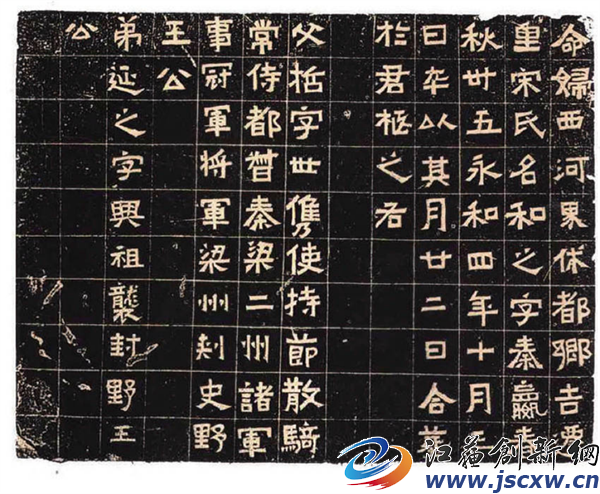 命婦西河界休都鄉吉遷
里宋氏名和之字秦嬴春
秋卅五永和四年十月三
日卒以其月廿二日合葬
於君柩之右
父哲字世儁使持節散騎
常侍都督秦梁二州諸軍
事冠軍將軍梁州刾史野
王公
弟延之字興祖襲封野王
公
江蘇創新網
www.jscxw.com